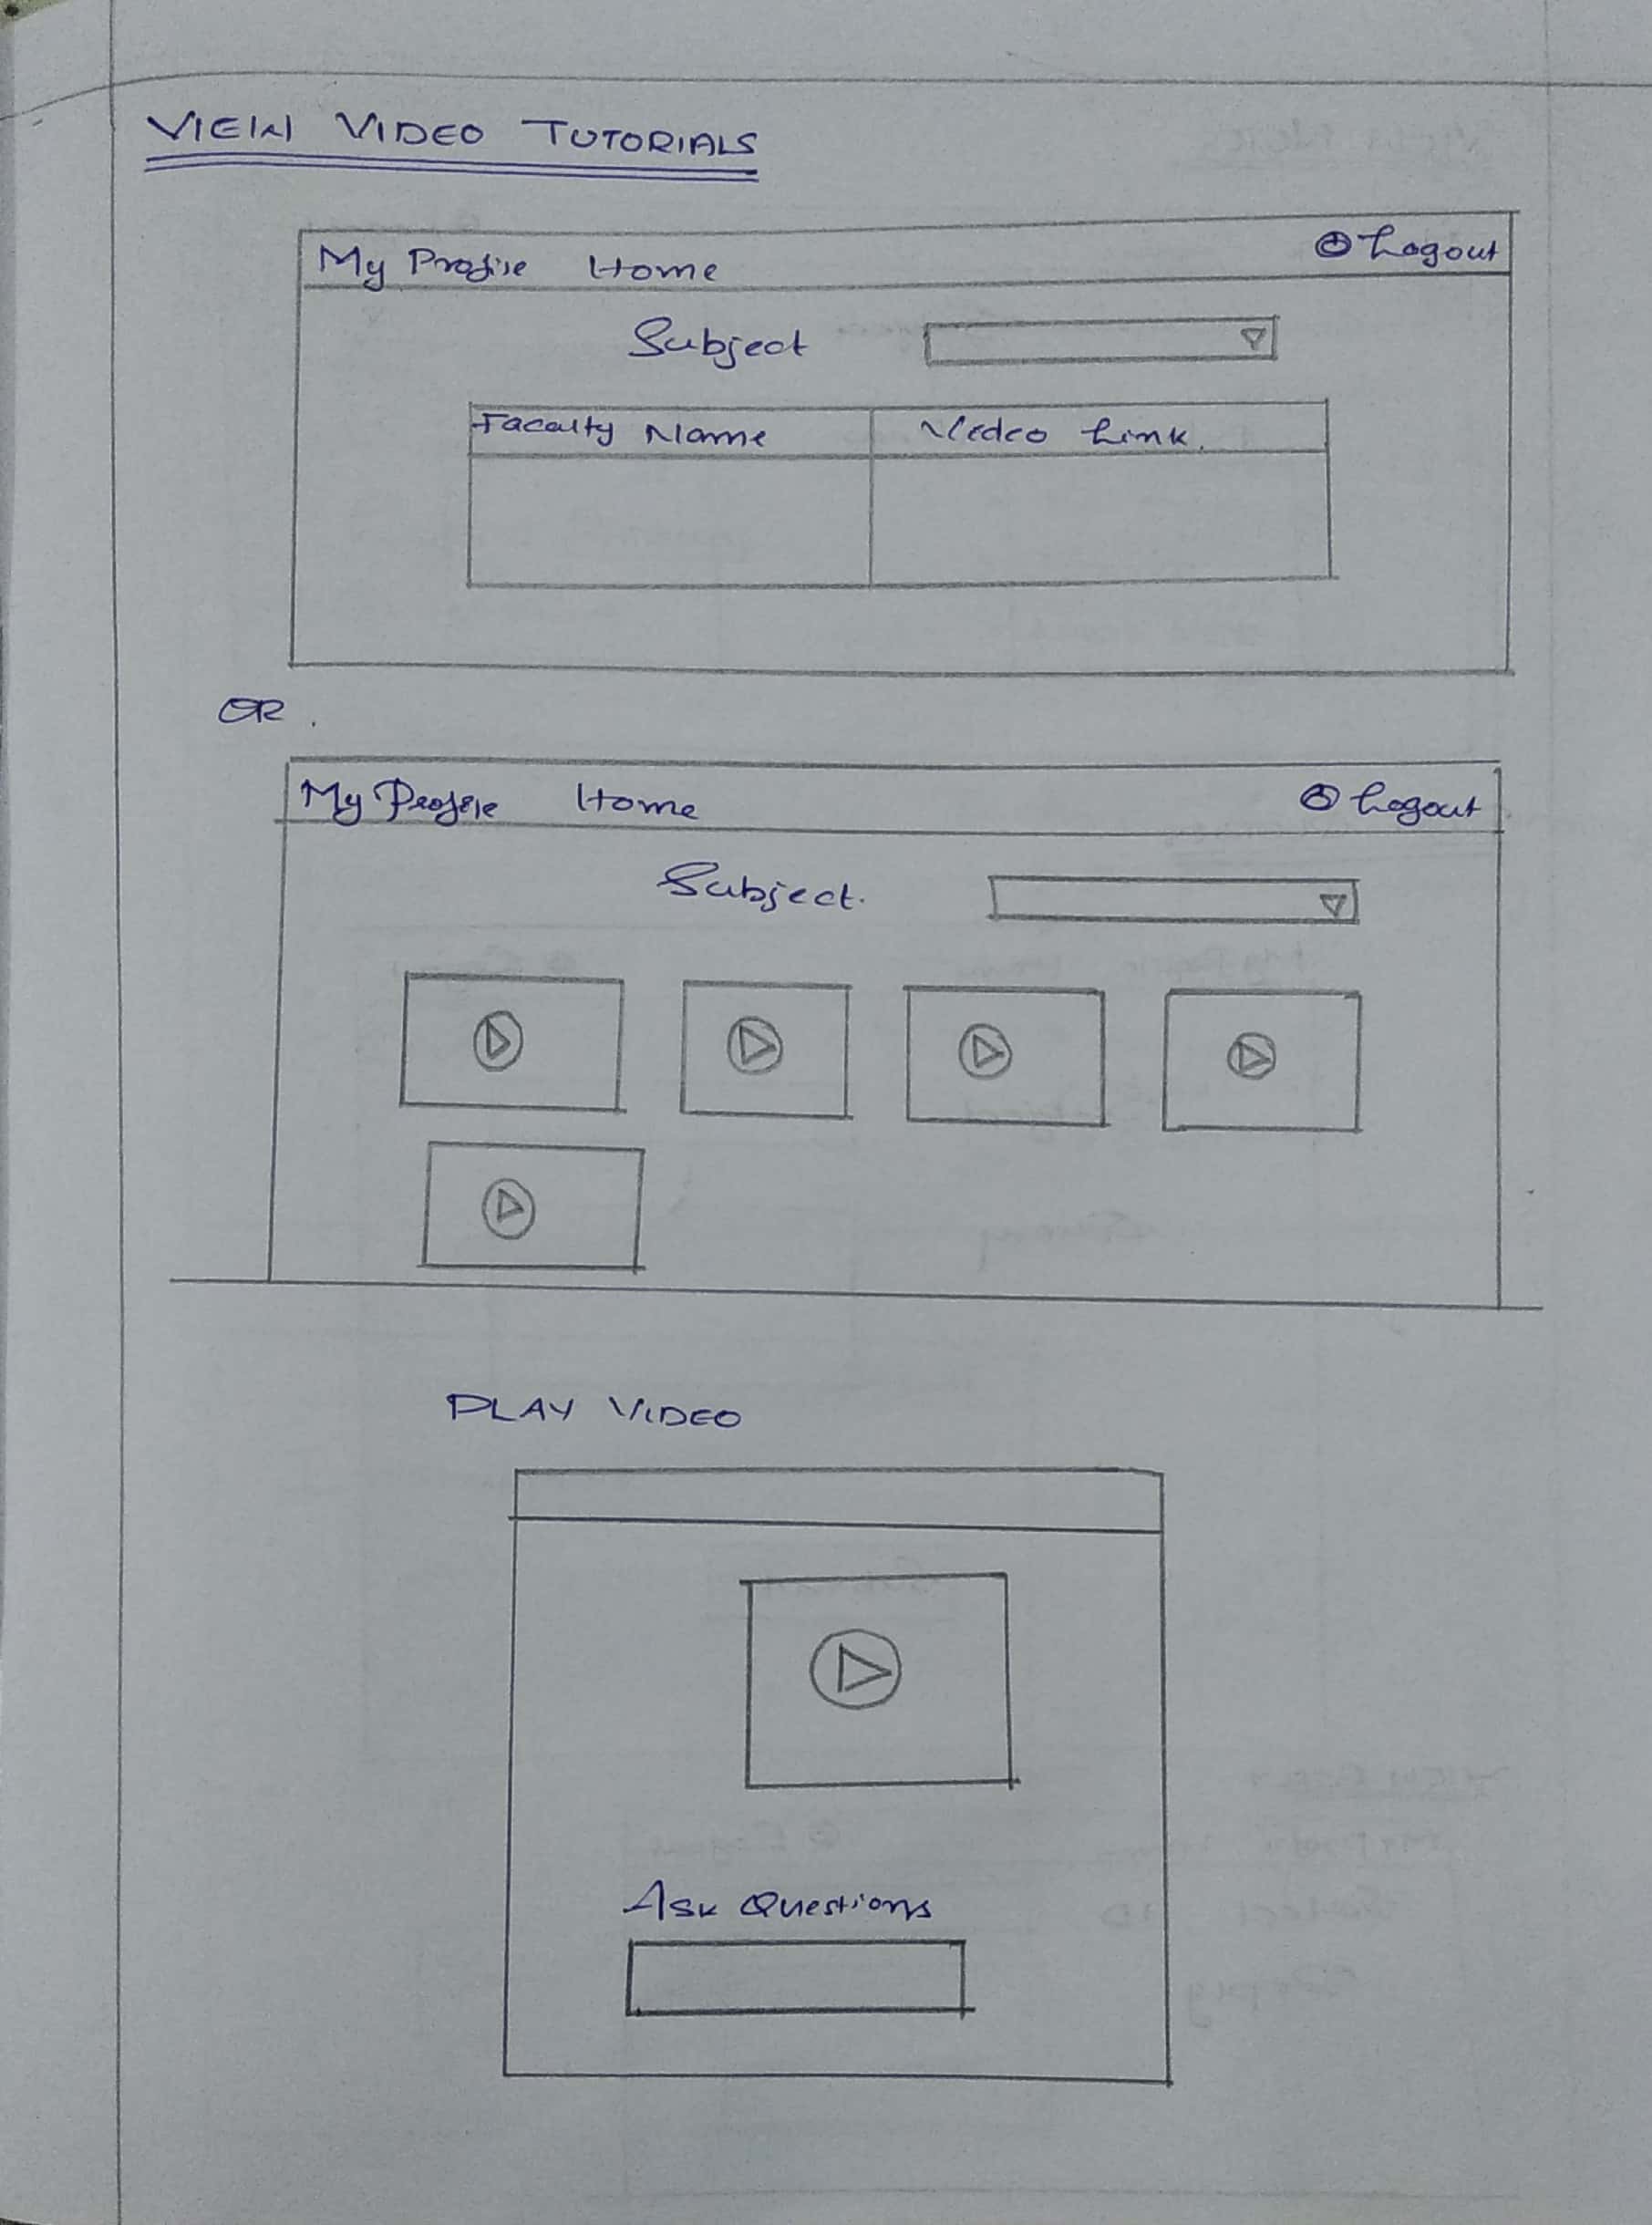 VIEW VIDEO TUTORIALS
My Profile Home Logout
Subject
Faculty Name Video Link.
OR.
My Profile Home Logout
Subject.
PLAY VIDEO
Ask Questions